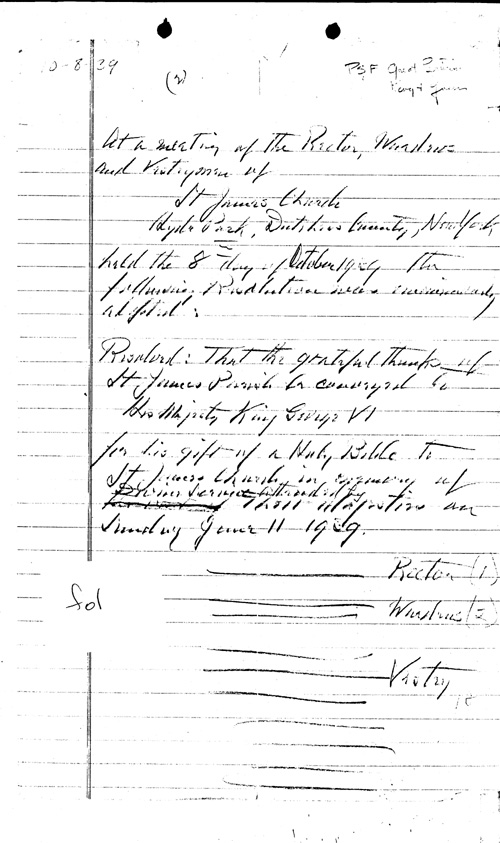 10-8-39
(2)
PSF Great Britain
King + Queen
At a meeting of the Rector, Wardens
and Vestrymen of
St James Church
Hyde Park, Dutchess County, New York,
held the 8th day of October 1939 the
following Resolution was unanimously
adopted:
Resolved: That the grateful thanks of
St. James Parish be conveyed to
His Majesty King George VI
for his gift of a Holy Bible to
St James Church in memory of
Divine Service attended by
Their Majesties on
Sunday June 11 1939.
Rector (1)
Wardens (2)
fol
Vestry